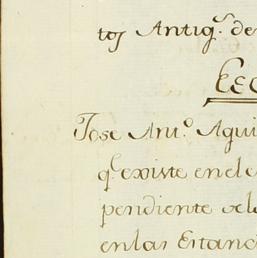 tos Antigs. de
Jose Anto. Agui
qe. existe en el
pendiente de la
en las Estanc